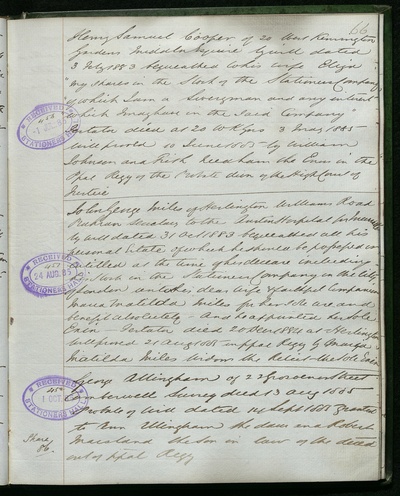 66
Henry Samuel Cooper of 20 West Kensington
Gardens Middlesex Esquire by will dated
3 July 1883 bequeathed to his wife Eliza
"my shares in the Stock of the Stationers Company
of which I am a Liveryman and any interest
which I may have in the said Company"
Testator died at 20 W K Gns 3 May 1885
will proved 10 June 1885 by William
Johnson and Needham the Exors in the
Ppal Regy of the Probate divn of the High Court of
Justice
RECEIVED
STATIONERS HALL
John George Miles of Williams Road
Secretary to the Hospital for
by will dated 31 Oct 1883 bequeathed all his
personal Estate of which he should be possessed or
entitled at the time of his decease including
in the Stationers Company in the City
of London unto his dear wife & faithful Companion
Maria Matilda Miles for her sole use and
benefit absolutely and he appointed her Sole
Exix Testator died 20 1884 at
will proved 21 Aug 1885 in ppal Regy by Maria
Matilda Miles widow the Relict the Sole Exix
RECEIVED
457
24 AUG. 85
STATIONERS HALL
George Allingham of 22 Grosvenor Street
Camberwell Surrey died 13 Aug 1885
Probate of Will dated 14 Sept 1885 granted
to Ann Allingham the and Robert
the Son in law of the decd
out of ppal Regy
RECEIVED
1 OCT.
STATIONERS HALL
Share
86.